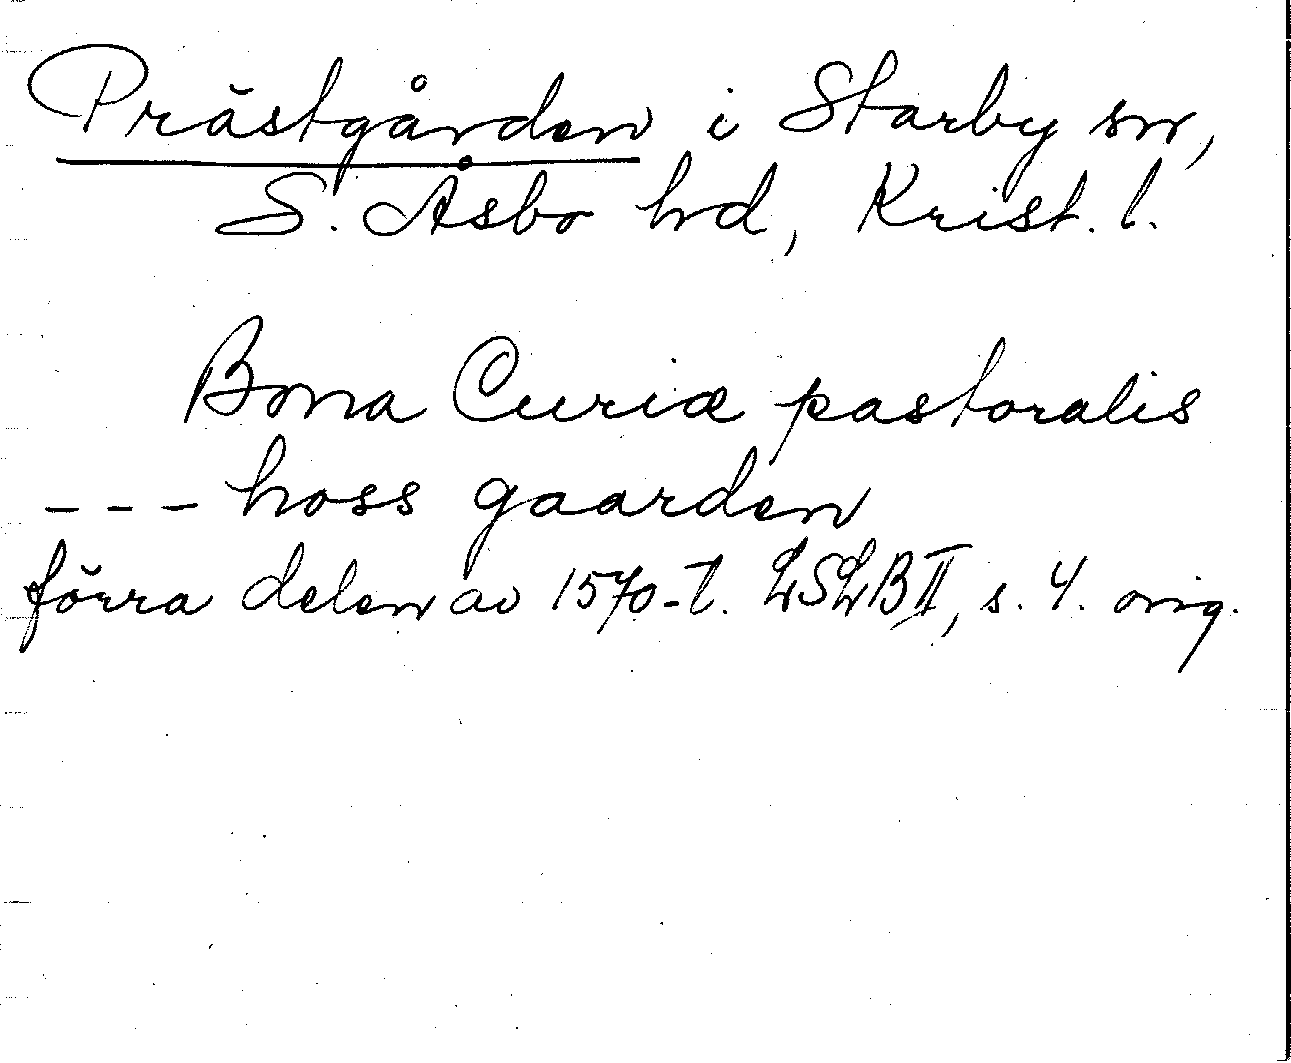 Prästgården i Starby sn,
S. Åsbo hd, Krist. l.
Bona Curiæ pastoralis
--- hoss gaarden
förra delen av 1570-t. LSLB II, s. 4. orig.